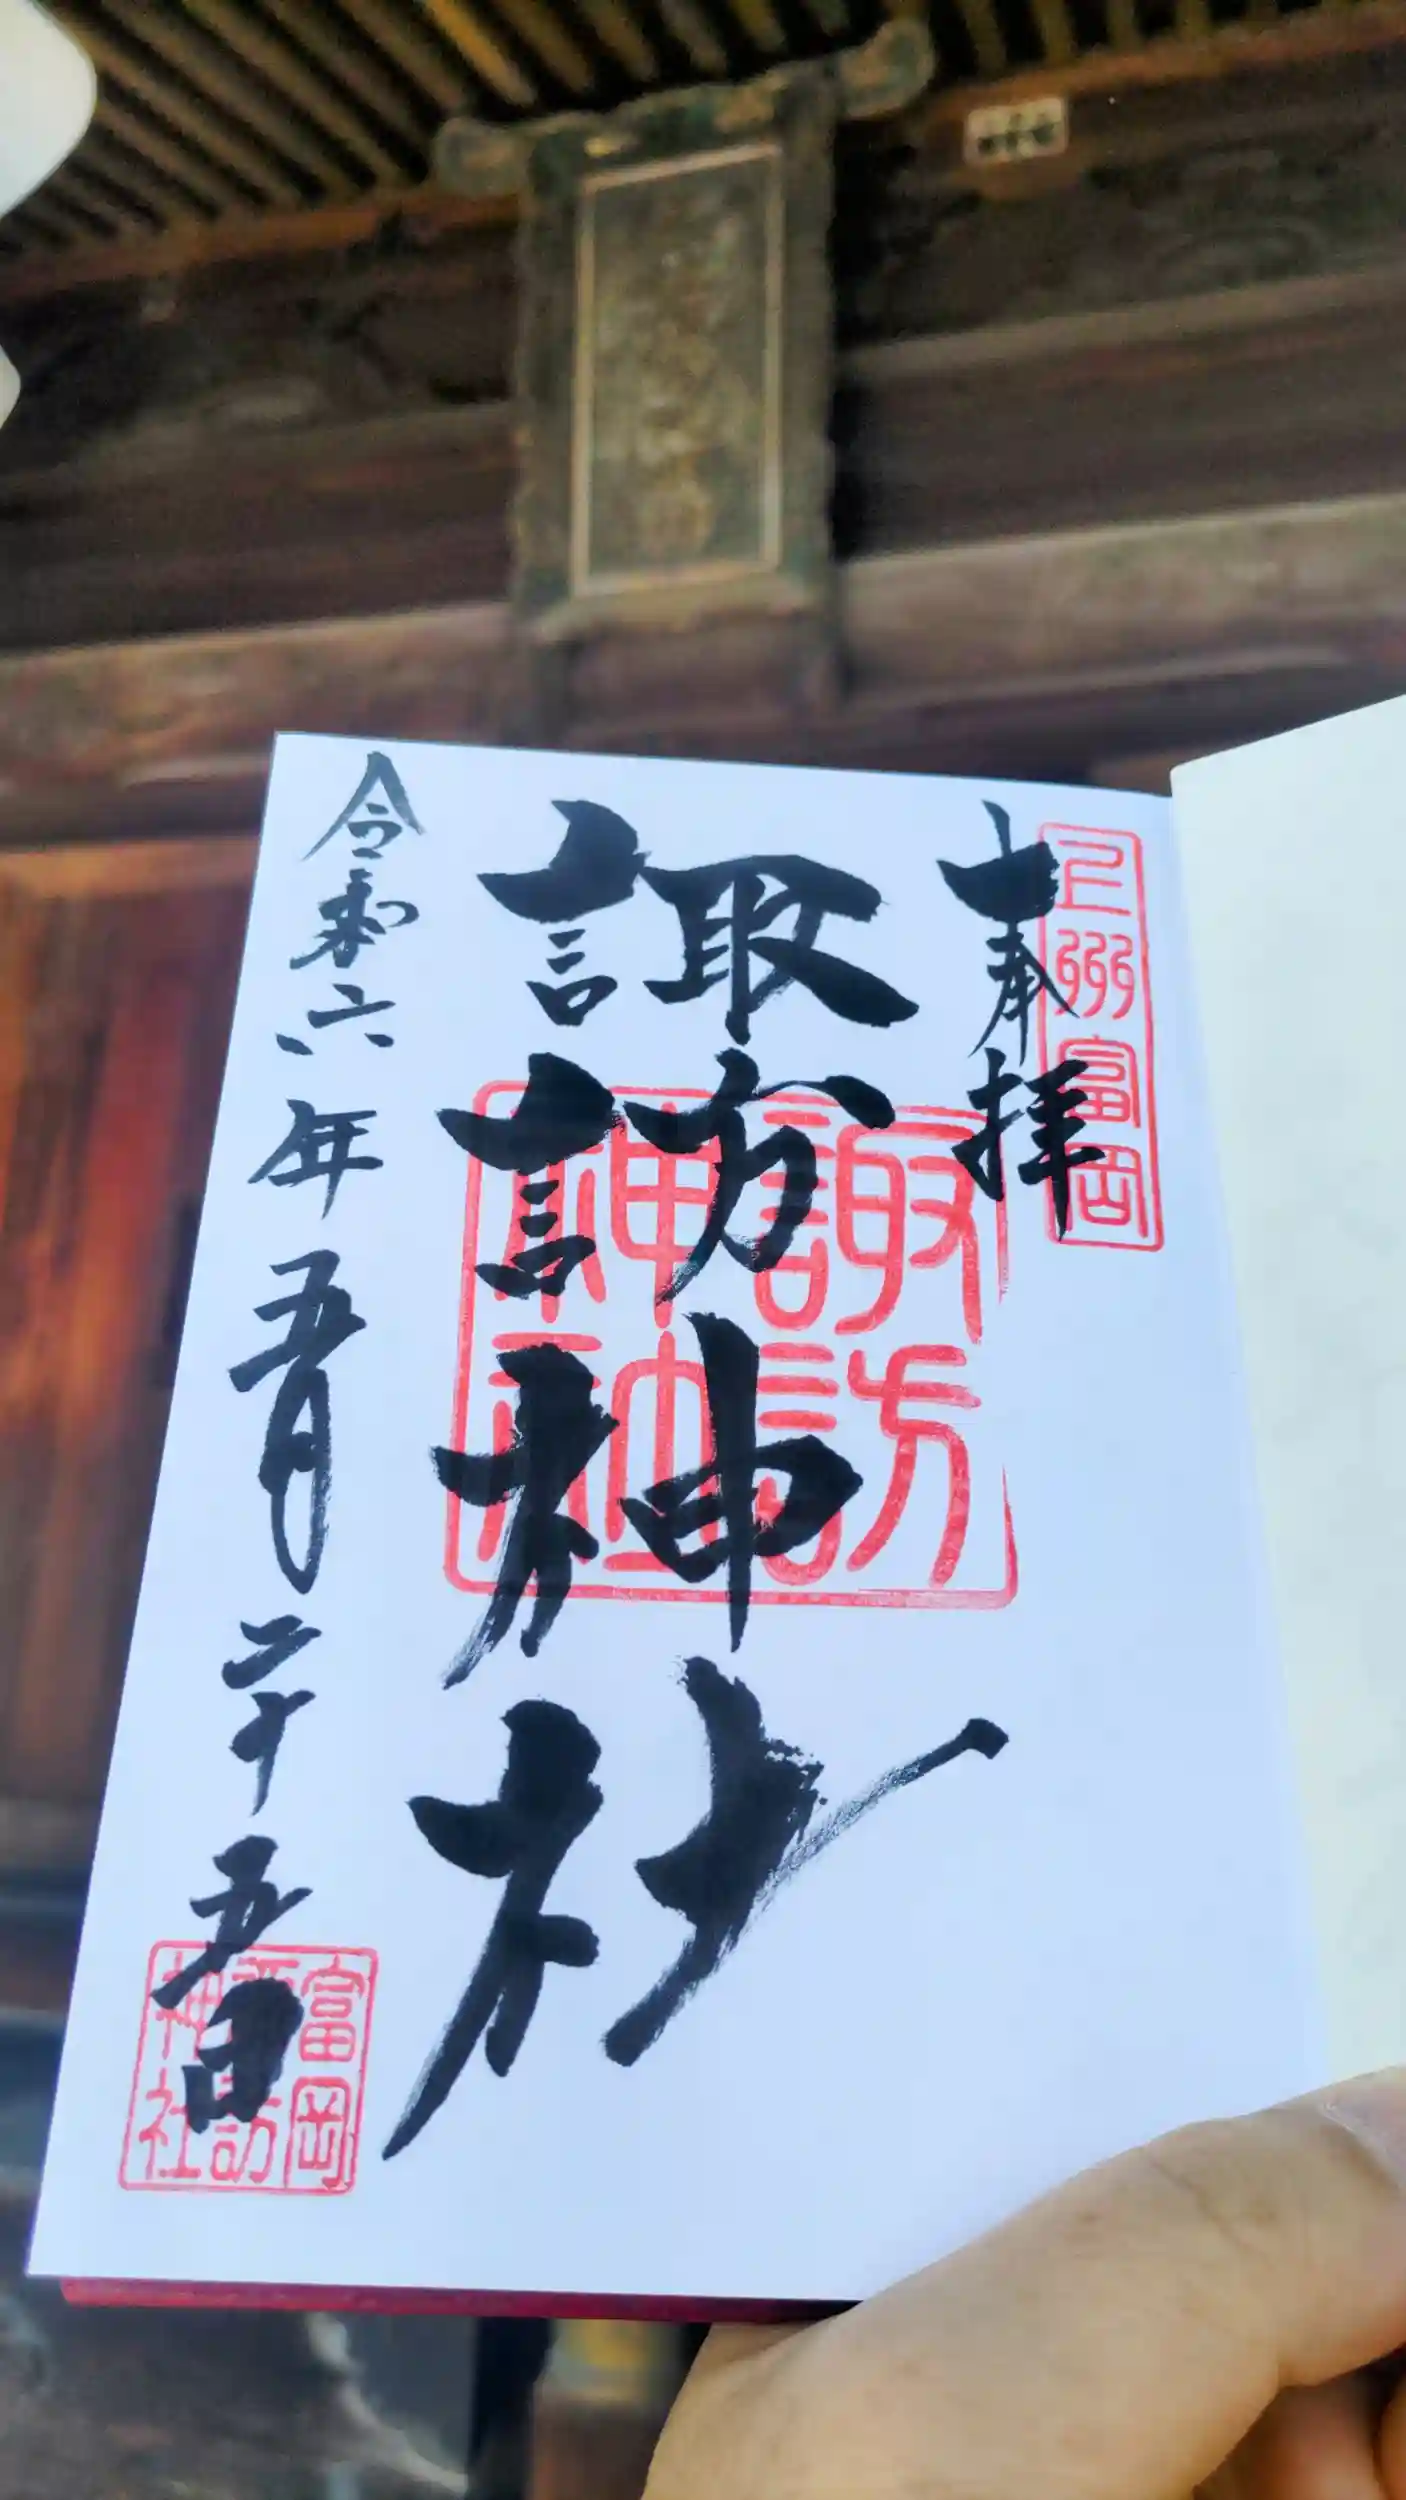 上州富岡
奉拝
諏訪神社
諏訪神社
令和六年五月二十五日
富岡諏訪神社